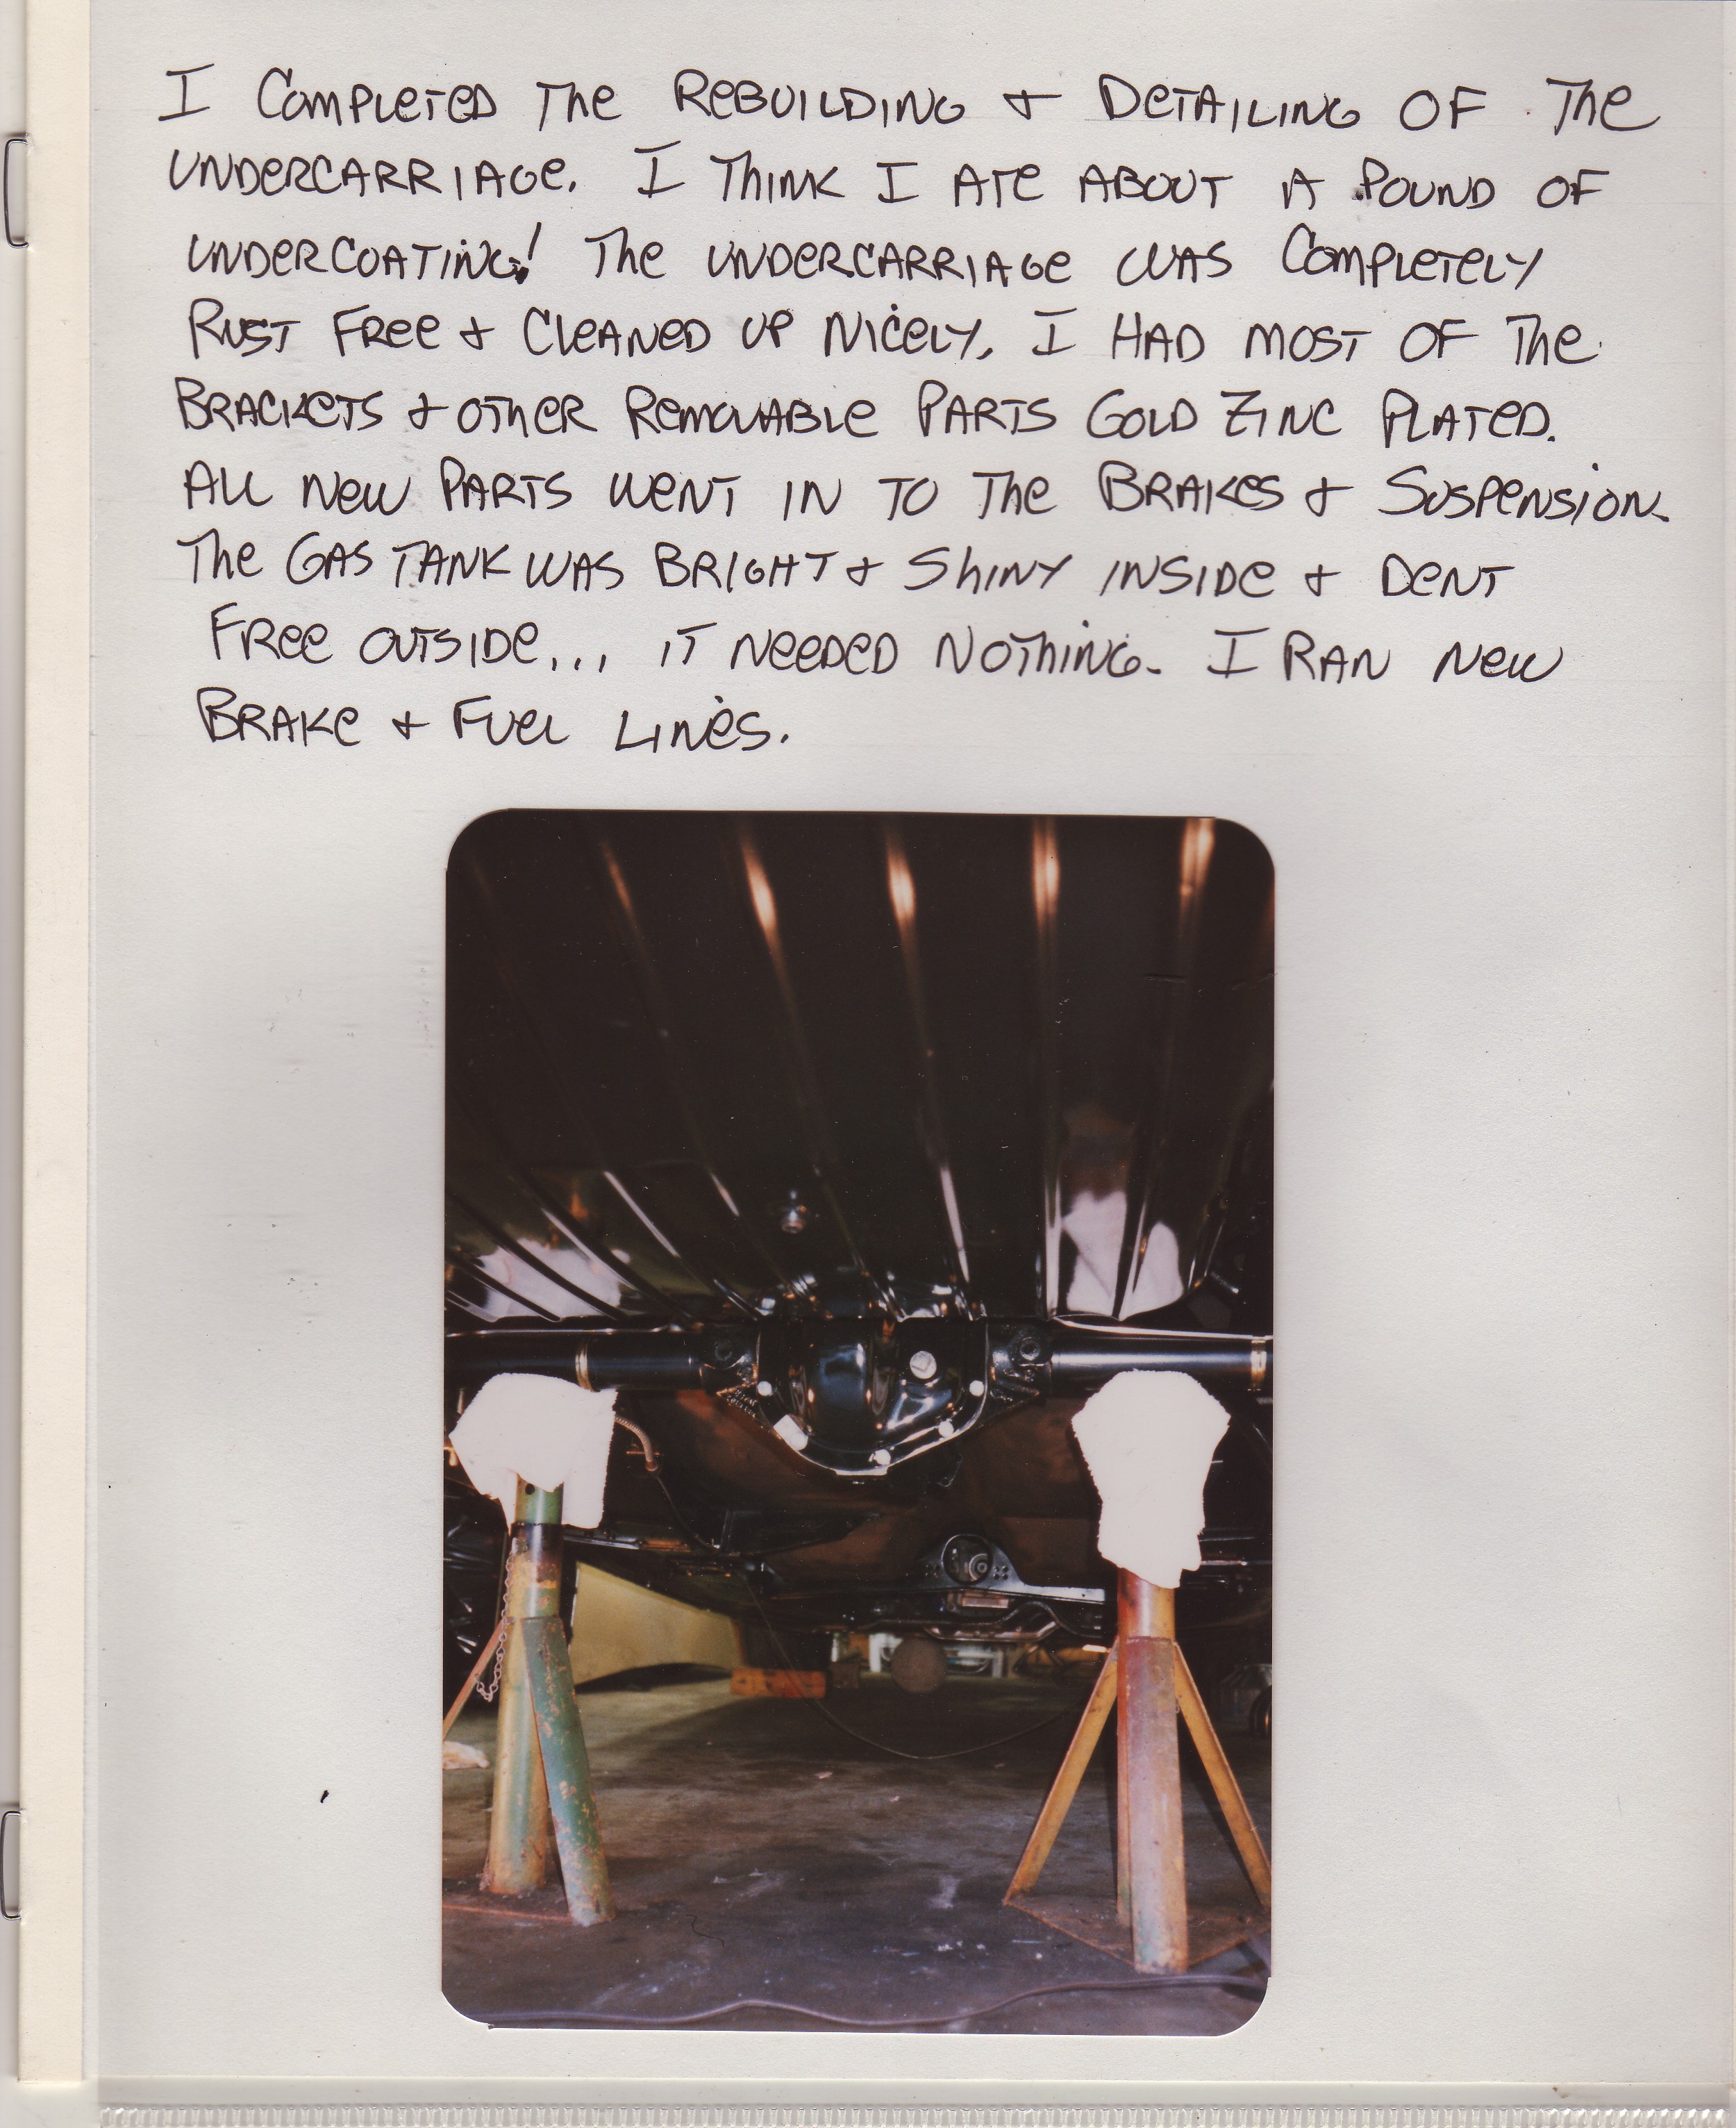 I COMPLETED THE REBUILDING & DETAILING OF THE
UNDERCARRIAGE. I THINK I ATE ABOUT A POUND OF
UNDERCOATING! THE UNDERCARRIAGE WAS COMPLETELY
RUST FREE & CLEANED UP NICELY. I HAD MOST OF THE
BRACKETS & OTHER REMOVABLE PARTS GOLD ZINC PLATED.
ALL NEW PARTS WENT IN TO THE BRAKES & SUSPENSION.
THE GAS TANK WAS BRIGHT & SHINY INSIDE & DENT
FREE OUTSIDE... IT NEEDED NOTHING. I RAN NEW
BRAKE & FUEL LINES.